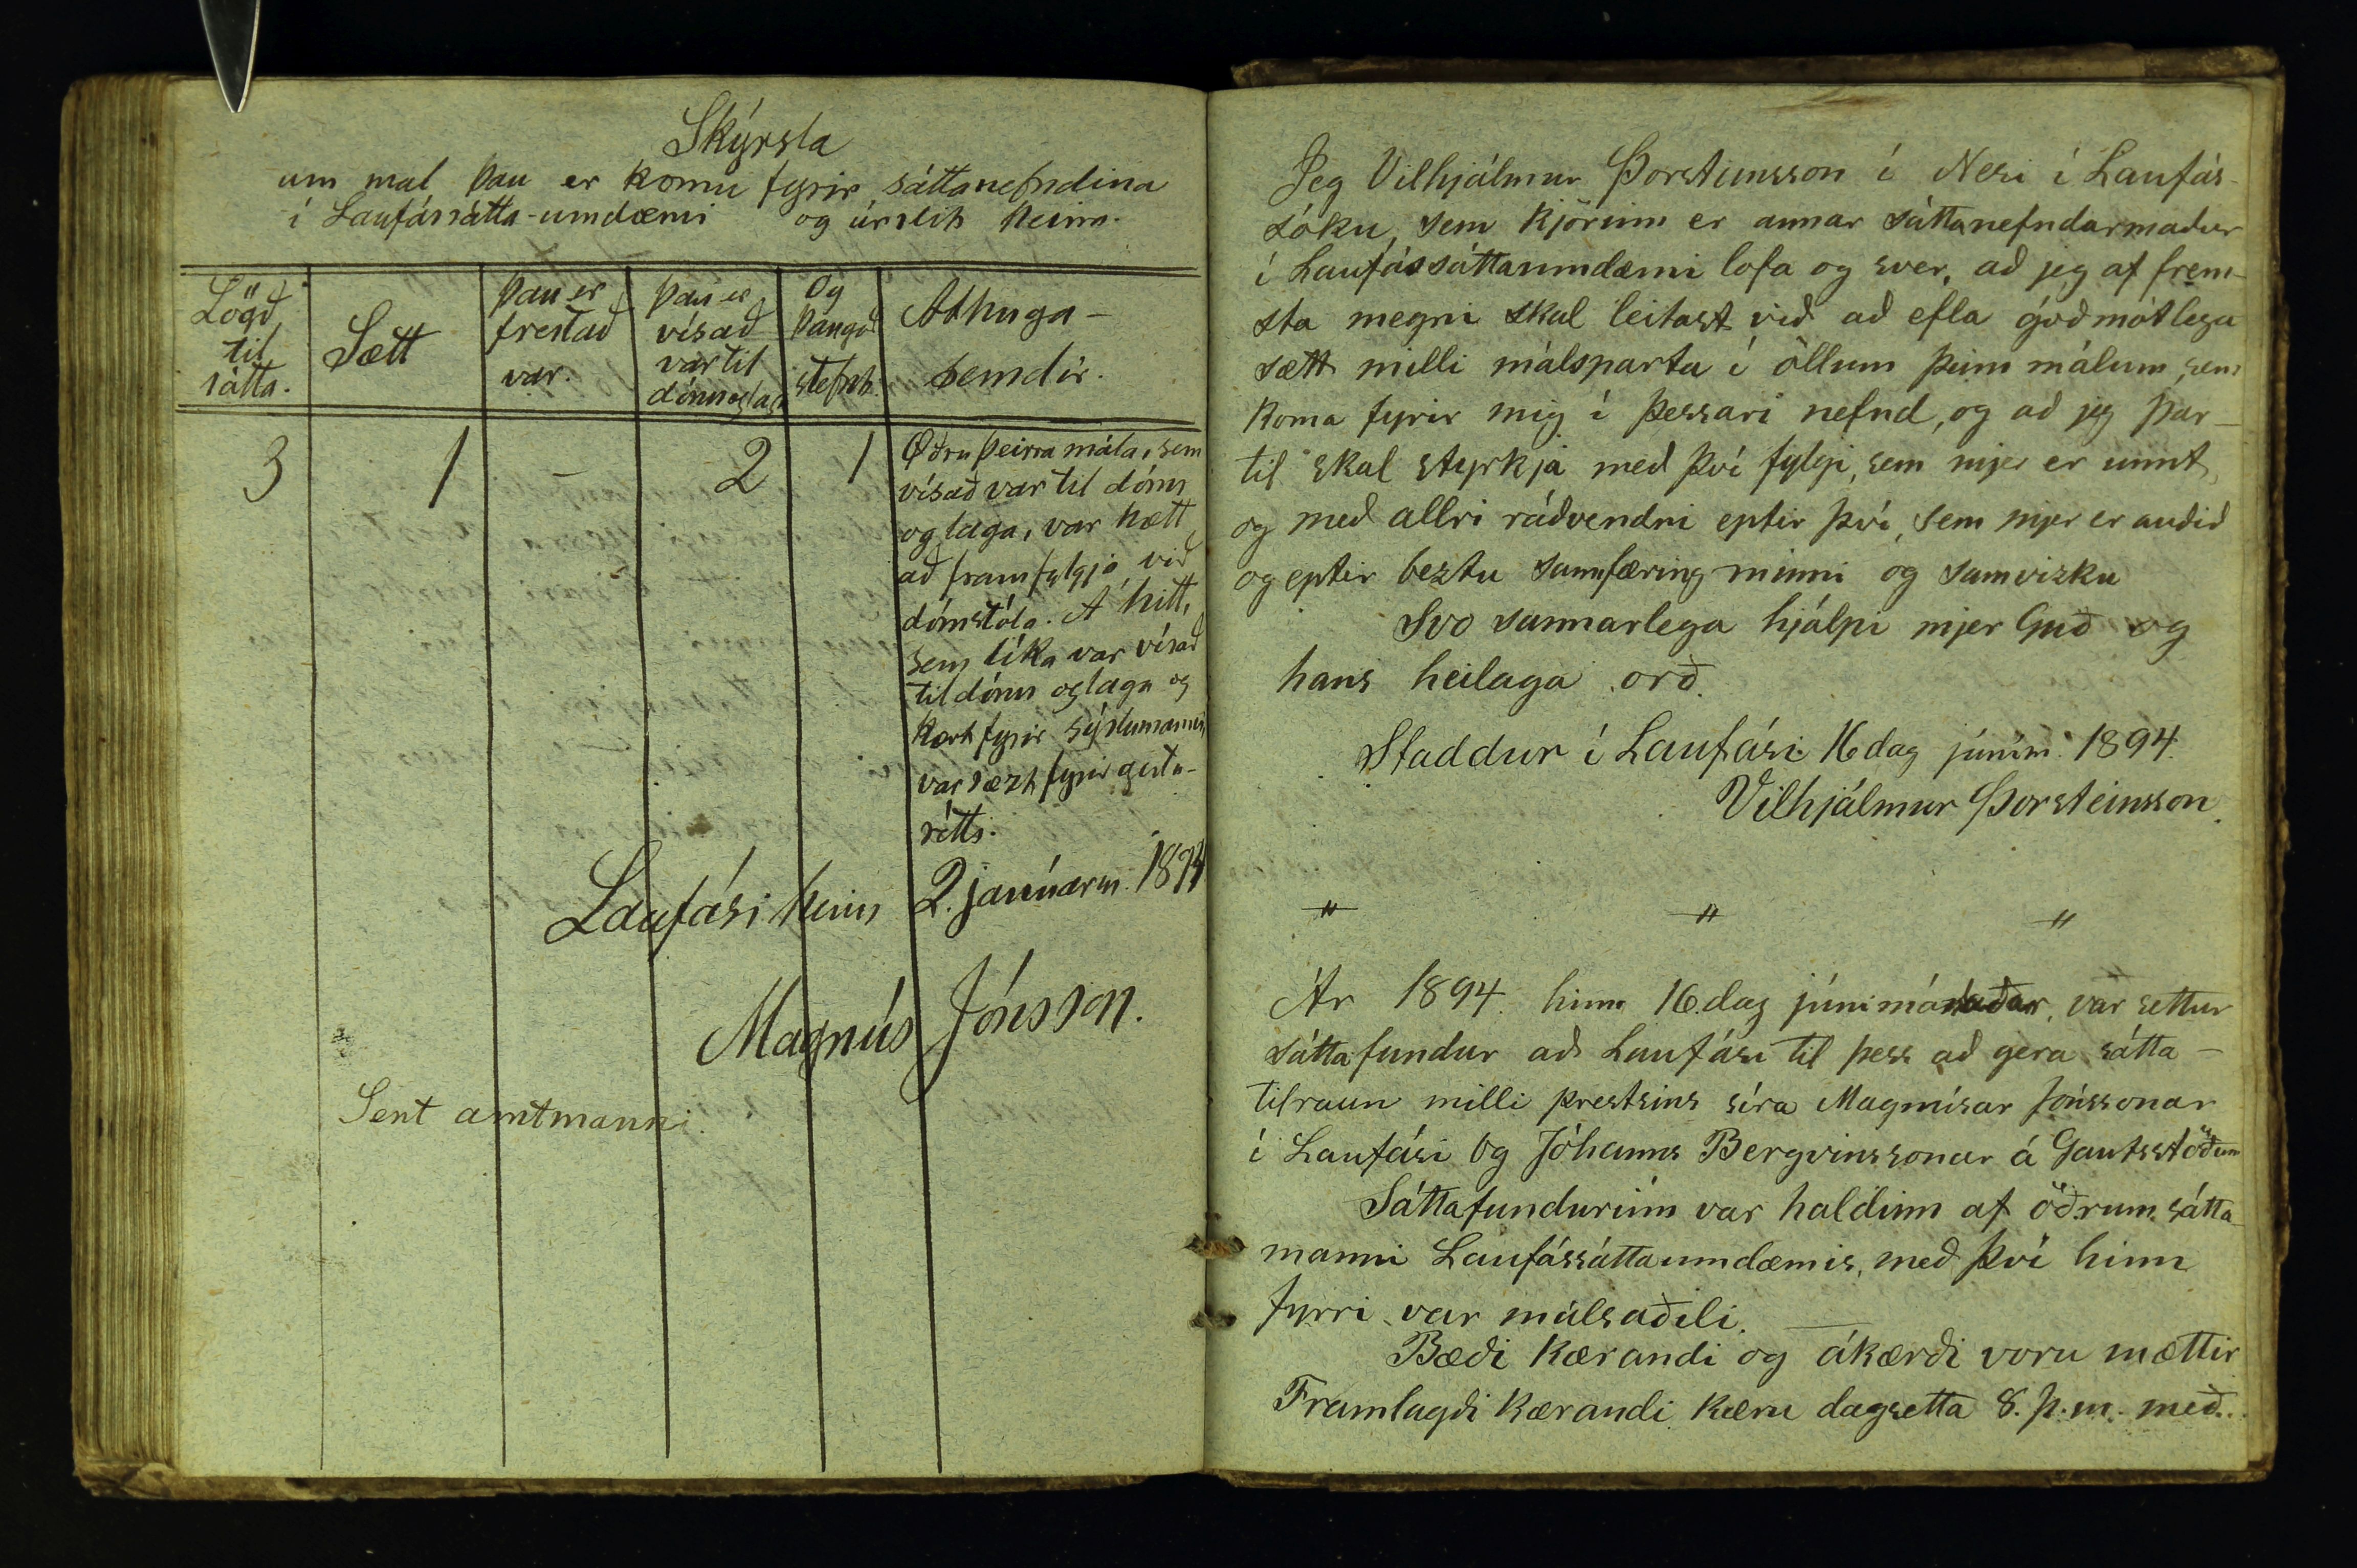 Skýrsla
um mál þau er komu fyrir sáttanefndina
í Laufássátta-umdæmi og úrslit þeirra.
Lögð til sátta.
Sætt
þau er frestað var.
þau er vísað var til dóms og laga
Og þangað stefnt.
Athugasemdir.
3 1 - 2 1
Öðru þeirra mála, sem
vísað var til dóms
og laga, var hætt
að framfylgja við
dómstóla. A hitt,
sem líka var vísað
til dóms og laga og
kært fyrir sýslumanni
var sæzt fyrir gesta-
rétti.
Laufási hinn 2. janúarm. 1894
Magnús Jónsson.
Sent amtmanni.
Jeg Vilhjálmur Þorsteinsson í Nesi í Laufás-
sóku, sem kjörinn er annar sáttanefndarmaður
í Laufássáttaumdæmi lofa og sver, að jeg af frem-
sta megni skal leitast við að efla góðmótlega
sætt milli málsparta í öllum þeim málum, sem
koma fyrir mig í þessari nefnd, og að jeg þar-
til skal styrkja með því fylgi, sem mjer er unnt,
og með allri ráðvendni eptir því, sem mjer er auðið
og eptir beztu sannfæring minni og samvizku
Svo sannarlega hjálpi mjer Guð og
hans heilaga orð.
Staddur í Laufási 16 dag júním. 1894.
Vilhjálmur Þorsteinsson.
" " "
Ár 1894. hinn 16. dag júnímánaðar, var settur
sáttafundur að Laufási til þess að gera sátta-
tilraun milli prestsins síra Magnúsar Jónssonar
í Laufási og Jóhanns Bergvinssonar á Gautsstöðum
Sáttafundurinn var haldinn af öðrum sátta-
manni Laufássáttaumdæmis, með því hinn
fyrri var málsaðili.
Bæði kærandi og ákærði voru mættir
Framlagði kærandi kæru dagsetta 8. þ.m. með..